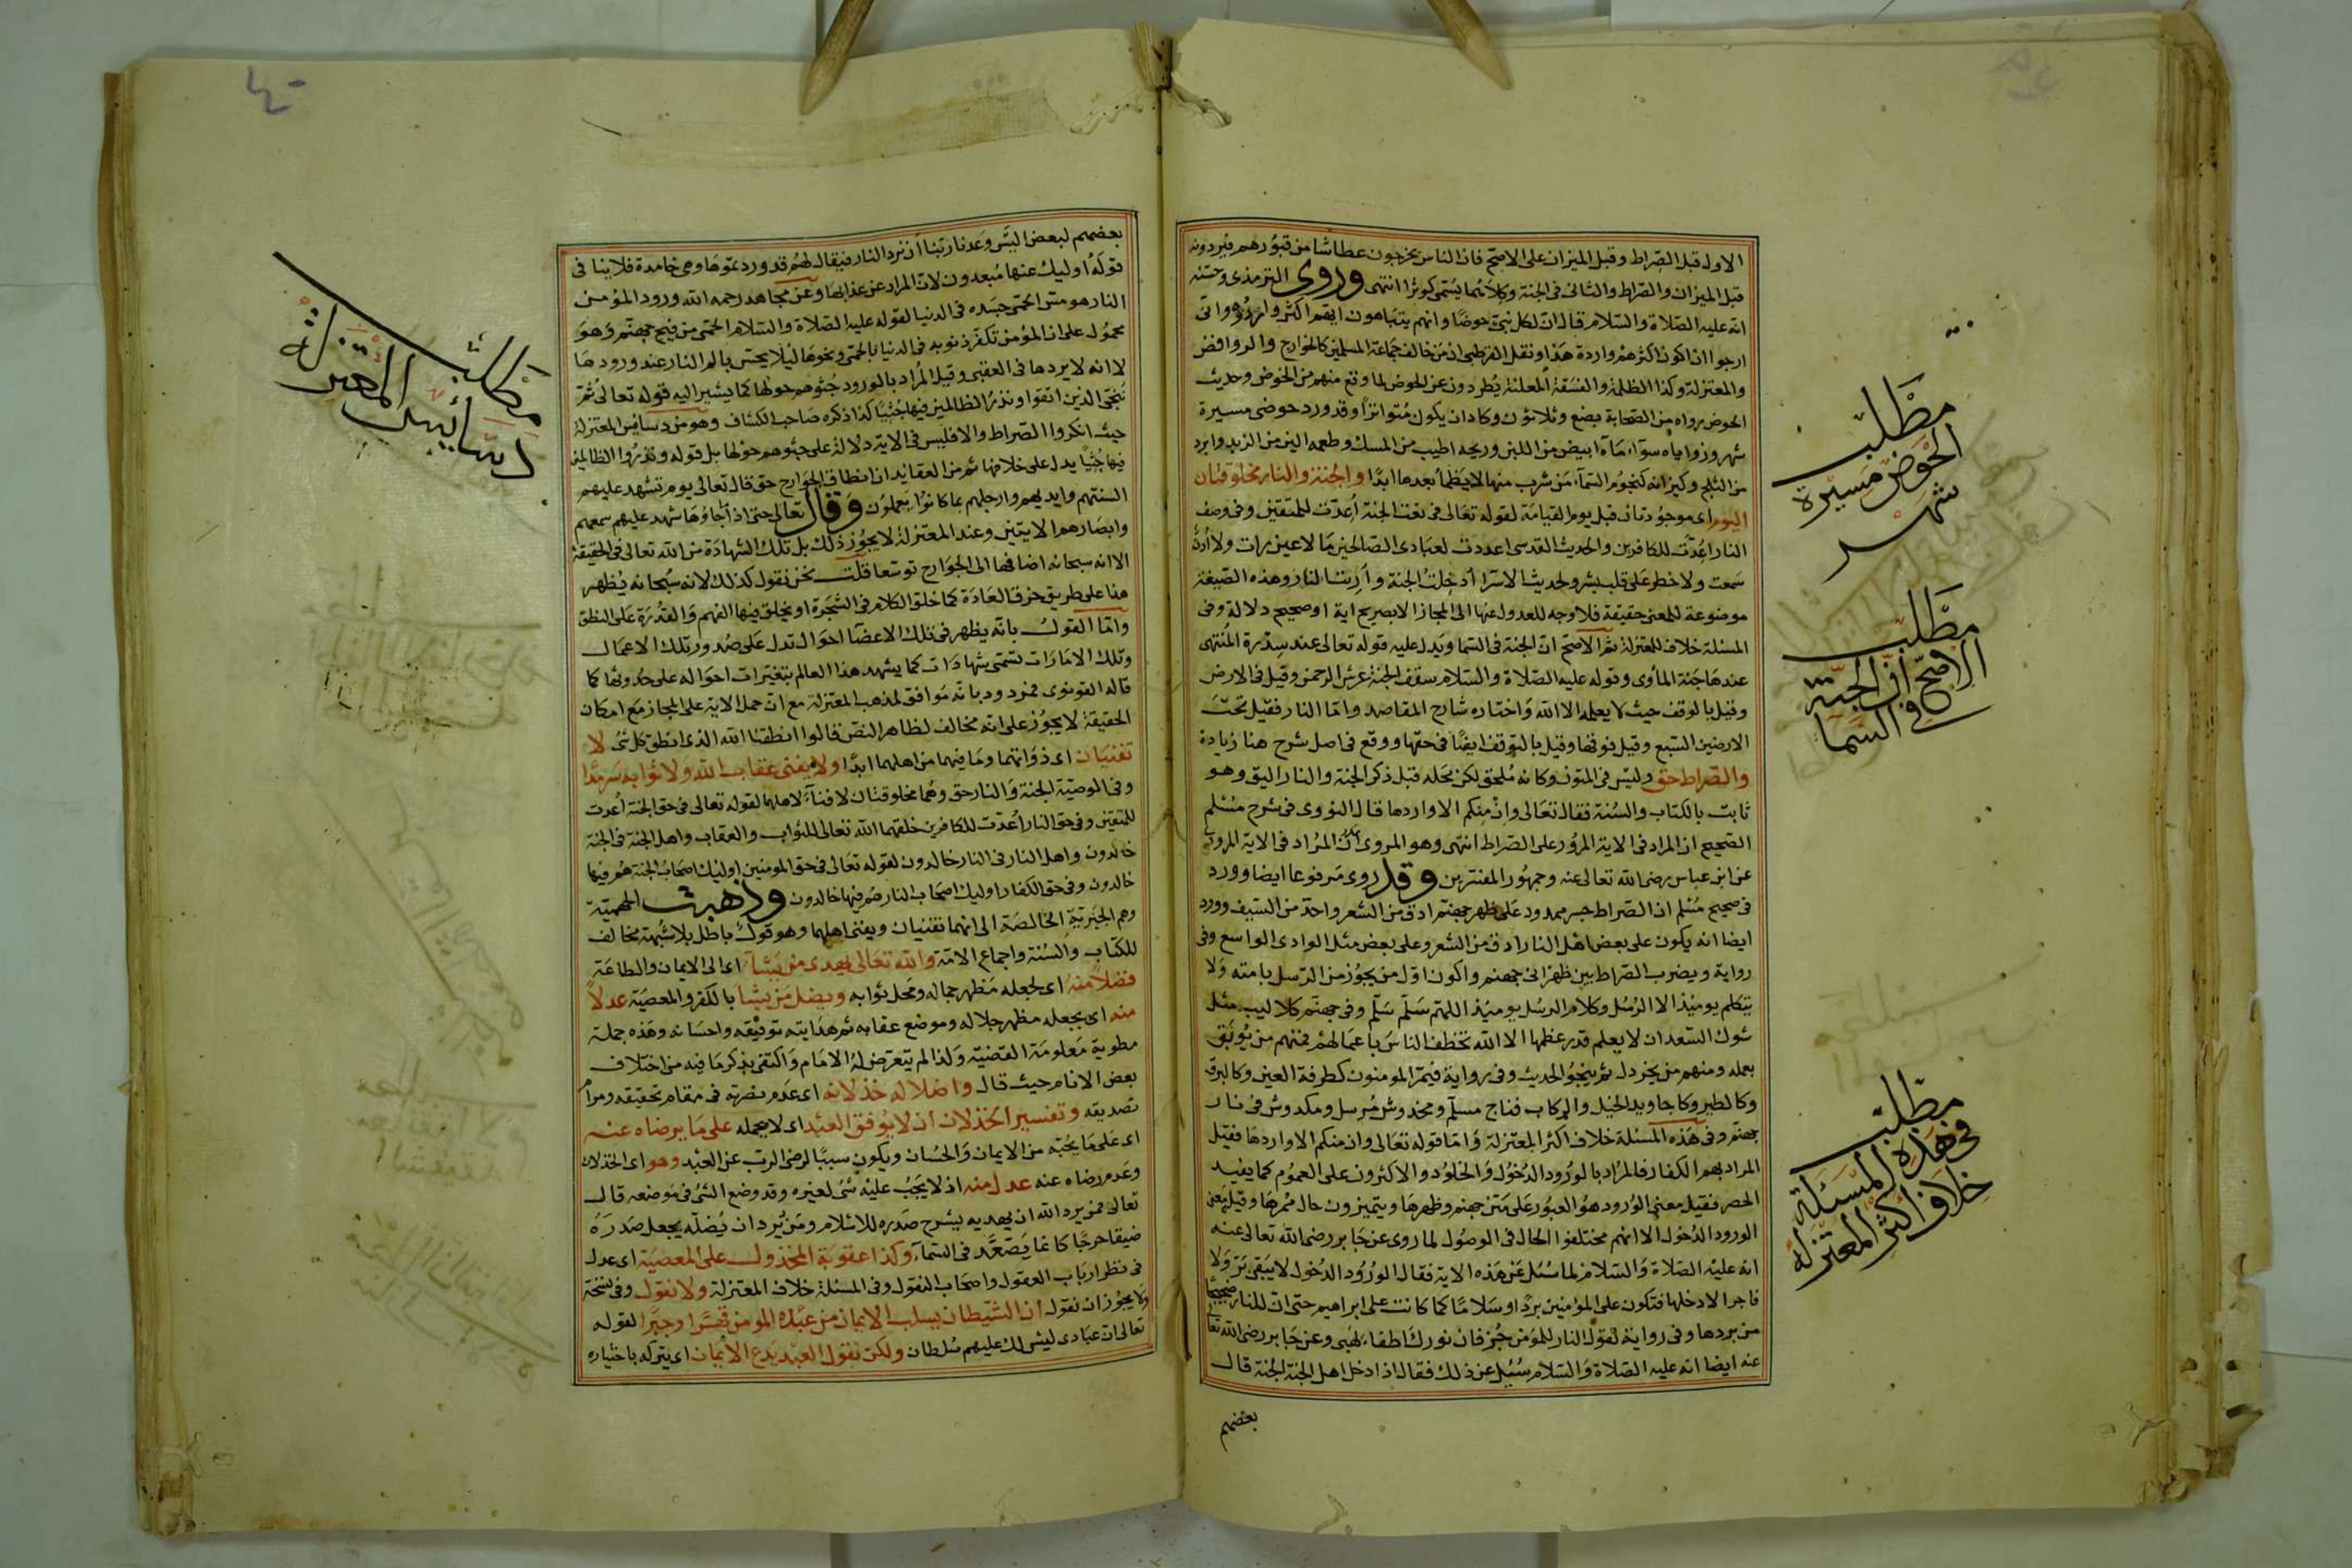 الاول قبل الصراط وقبل الميزان على الاصح فان الناس يخرجون عطاشا من قبورهم فيردونه
قبل الميزان والصراط والثانى فى الجنة وكلاهما يسمى كوثرا انتهى وروى الترمذى وحسنه
انه عليه الصلاة والسلام قال ان لكل نبى حوضا وانهم يتباهون ايهم اكثر واردة وانى
ارجوا ان اكون اكثرهم واردة هذا ونقل القرطبى ان من خالف جماعة المسلمين كالخوارج والروافض
والمعتزلة وكذا الظلمة والفسقة المعلنة يطردون عن الحوض لما وقع منهم من الخوض وحديث
الحوض رواه من الصحابة بضع وثلاثون وكاد ان يكون متواترا وقد ورد حوضى مسيرة
شهر وزواياه سوآء مآءه ابيض من اللبن وريحه اطيب من المسك وطعمه الين من الزبد وابرد
من الثلج وكيزانه كنجوم السمآء من شرب منها لا يظمأ بعدها ابدا والجنة والنار مخلوقتان
اليوم اى موجودتان قبل يوم القيامة لقوله تعالى فى نعت الجنة أعدت للمتقين وفى وصف
النار أعدت للكافرين والحديث القدسى اعددت لعبادى الصالحين ما لا عين رات ولا أذن
سمعت ولا خطر على قلب بشر ولحديث الاسرا أدخلت الجنة وأريت النار وهذه الصيغة
موضوعة للمعنى حقيقة فلا وجه للعدول عنها الى المجاز الا بصريح اية او صحيح دلالة وفى
المسئلة خلاف للمعتزلة ثم الاصح ان الجنة فى السما ويدل عليه قوله تعالى عند سدرة المنتهى
عندها جنة المأوى وقوله عليه الصلاة والسلام سقف الجنة عرش الرحمن وقيل فى الارض
وقيل بالوقف حيث لا يعلمه الا الله واختاره شارح المقاصد واما النار فقيل تحت
الارضين السبع وقيل فوقها وقيل بالتوقف ايضا فى حقها ووقع فى اصل شرح هنا زيادة
والصراط حق وليس فى المتون وكانه ملحق لكن محله قبل ذكر الجنة والنار اليق وهو
ثابت بالكتاب والسنة فقال تعالى وان منكم الا واردها قال النووى فى شرح مسلم
الصحيح ان المراد فى الاية المرور على الصراط انتهى وهو المروى ان المراد فى الاية المروى
عن ابن عباس رضى الله تعالى عنه وجمهور المفسرين وقد روى مرفوعا ايضا وورد
فى صحيح مسلم ان الصراط جسر ممدود على ظهر جهنم ادق من الشعر واحد من السيف وورد
ايضا انه يكون على بعض اهل النار ادق من الشعر وعلى بعض مثل الوادى الواسع وفى
رواية ويضرب الصراط بين ظهرانى جهنم واكون اول من يجوز من الرسل بامته ولا
يتكلم يومئذ الا الرسل وكلام الرسل يومئذ اللهم سلم سلم وفى جهنم كلاليب مثل
شوك السعدان لا يعلم قدر عظمها الا الله تخطف الناس باعمالهم فمنهم من يوبق
بعمله ومنهم من يخردل ثم ينجو الحديث وفى رواية فيمر المومنون كطرفة العين وكالبرق
وكالطير وكاجاويد الخيل والركاب فناج مسلم ومخدوش مرسل ومكدوش فى نار
جهنم وفى هذه المسئلة خلاف اكثر المعتزلة واما قوله تعالى وان منكم الا واردها فقيل
المراد بهم الكفار فالمراد بالورود الدخول والخلود والاكثرون على العموم كما يفيد
الحصر فقيل معنى الورود هو العبور على متن جهنم وظهرها ويتميزون حال ممرها وقيل معنى
الورود الدخول الا انهم مختلفوا الحال فى الوصول لما روى عن جابر رضى الله تعالى عنه
انه عليه الصلاة والسلام لما سئل عن هذه الاية فقال الورود الدخول لا يبقى بر ولا
فاجر الا دخلها فتكون على المؤمنين بردا وسلاما كما كانت على ابراهيم حتى ان للنار ضجيجا
من بردها وفى رواية تقول النار للمؤمن جز فان نورك اطفاء لهبى وعن جابر رضى الله تعا
عنه ايضا انه عليه الصلاة والسلام سئل عن ذلك فقال اذا دخل اهل الجنة الجنة قال
بعضهم
مطلب
الحوض مسيرة
شهر
مطلب
الاصح ان الجنة
فى السما
مطلب
فى هذه المسئلة
خلاف اكثر المعتزلة
بعضهم لبعض اليس وعدنا ربنا أن نرد النار فيقال لهم قد وردتموها وهى خامدة فلا ينافى
قوله اوليك عنها مبعدون لان المراد عن عذابها وعن مجاهد رحمه الله ورود المؤمن
النار هو مس الحمى جسده فى الدنيا لقوله عليه الصلاة والسلام الحمى من فيح جهنم وهو
محمول على ان المؤمن تكفر ذنوبه فى الدنيا بالحمى ونحوها ليلا يحس بالم النار عند ورودها
لا انه لا يردها فى العقبى وقيل المراد بالورود جثوهم حولها كما يشير اليه قوله تعالى ثم
ننجى الذين اتقوا ونذر الظالمين فيها جثيا كذا ذكره صاحب الكشاف وهو من دسائس المعتزلة
حيث انكروا الصراط والا فليس فى الاية دلالة على جثوهم حولها بل قوله ونذر الظالمين
فيها جثيا يدل على خلافها ثم من العقائد ان انطاق الجوارح حق قال تعالى يوم تشهد عليهم
السنتهم وايديهم وارجلهم بما كانوا يعملون وقال تعالى حتى اذا ما جاؤها شهد عليهم سمعهم
وابصارهم الايتين وعند المعتزلة لا يجوز ذلك بل تلك الشهادة من الله تعالى فى الحقيقة
الا انه سبحانه اضافها الى الجوارح توسعا قلت نحن نقول كذلك لانه سبحانه يظهر
هنا على طريق خرق العادة كما خلق الكلام فى الشجرة او يخلق فيها الفهم والقدرة على النطق
واما القول بانه يظهر فى تلك الاعضا احوال تدل على صدور تلك الاعمال
وتلك الامارات تسمى شهادات كما يشهد هذا العالم بتغيرات احواله على حدوثها كما
قاله القونوى فمردود بانه موافق لمذهب المعتزلة مع ان حمل الاية على المجاز مع امكان
الحقيقة لا يجوز على انه مخالف لظاهر النص قالوا انطقنا الله الذى انطق كل شئ لا
تفنيان اى ذواتهما وما فيهما من اهلهما ابدا ولا يفنى عقاب الله ولا ثوابه سرمدا
وفى الوصية الجنة والنار حق وهما مخلوقتان لا فناء لاهلهما لقوله تعالى فى حق الجنة أعدت
للمتقين وفى حق النار أعدت للكافرين خلقهما الله تعالى للثواب والعقاب واهل الجنة فى الجنة
خالدون واهل النار فى النار خالدون لقوله تعالى فى حق المومنين اوليك اصحاب الجنة هم فيها
خالدون وفى حق الكفار اوليك اصحاب النار هم فيها خالدون وذهبت الجهمية
وهم الجبرية الخالصة الى انهما تفنيان ويفنى اهلهما وهو قول باطل بلا شبهة مخالف
للكتاب والسنة واجماع الامة والله تعالى يهدى من يشآء اى الى الايمان والطاعة
فضلا منه اى لجعله مظهر جماله ومحل ثوابه ويضل من يشا بالكفر والمعصية عدلا
منه اى يجعله مظهر جلاله وموضع عقابه ثم هدايته توفيقه واحسانه وهذه جملة
مطوية معلومة القضية ولذا لم يتعرض له الامام واكتفى بذكر ما فيه من اختلاف
بعض الانام حيث قال واضلاله خذلانه اى عدم نصرته فى مقام تحقيقه ومرام
تصديقه وتفسير الخذلان ان لا يوفق العبد اى لا يحمله على ما يرضاه عنه
اى على ما يحبه من الايمان والحسان ويكون سببا لرضى الرب عن العبد وهو اى الخذلان
وعدم رضاه عنه عدل منه اذ لا يجب عليه شئ لغيره وقد وضع الشئ فى موضعه قال
تعالى فمن يرد الله ان يهديه يشرح صدره للاسلام ومن يرد ان يضله يجعل صدره
ضيقا حرجا كانما يصعد فى السمآء وكذا عقوبة المخذول على المعصية اى عدل
فى نظر ارباب العقول واصحاب النقول وفى المسئلة خلاف المعتزلة ولا نقول وفى نسخة
ولا يجوز ان نقول ان الشيطان يسلب الايمان من عبده المومن قهرا وجبرا لقوله
تعالى ان عبادى ليس لك عليهم سلطان ولكن نقول العبد يدع الايمان اى يتركه باختياره
مطلب
دسائيس المعتزلة